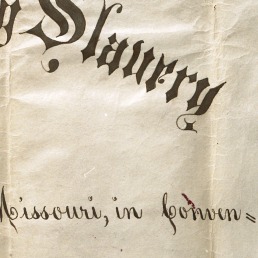 g Slavery
Missouri, in Conven=